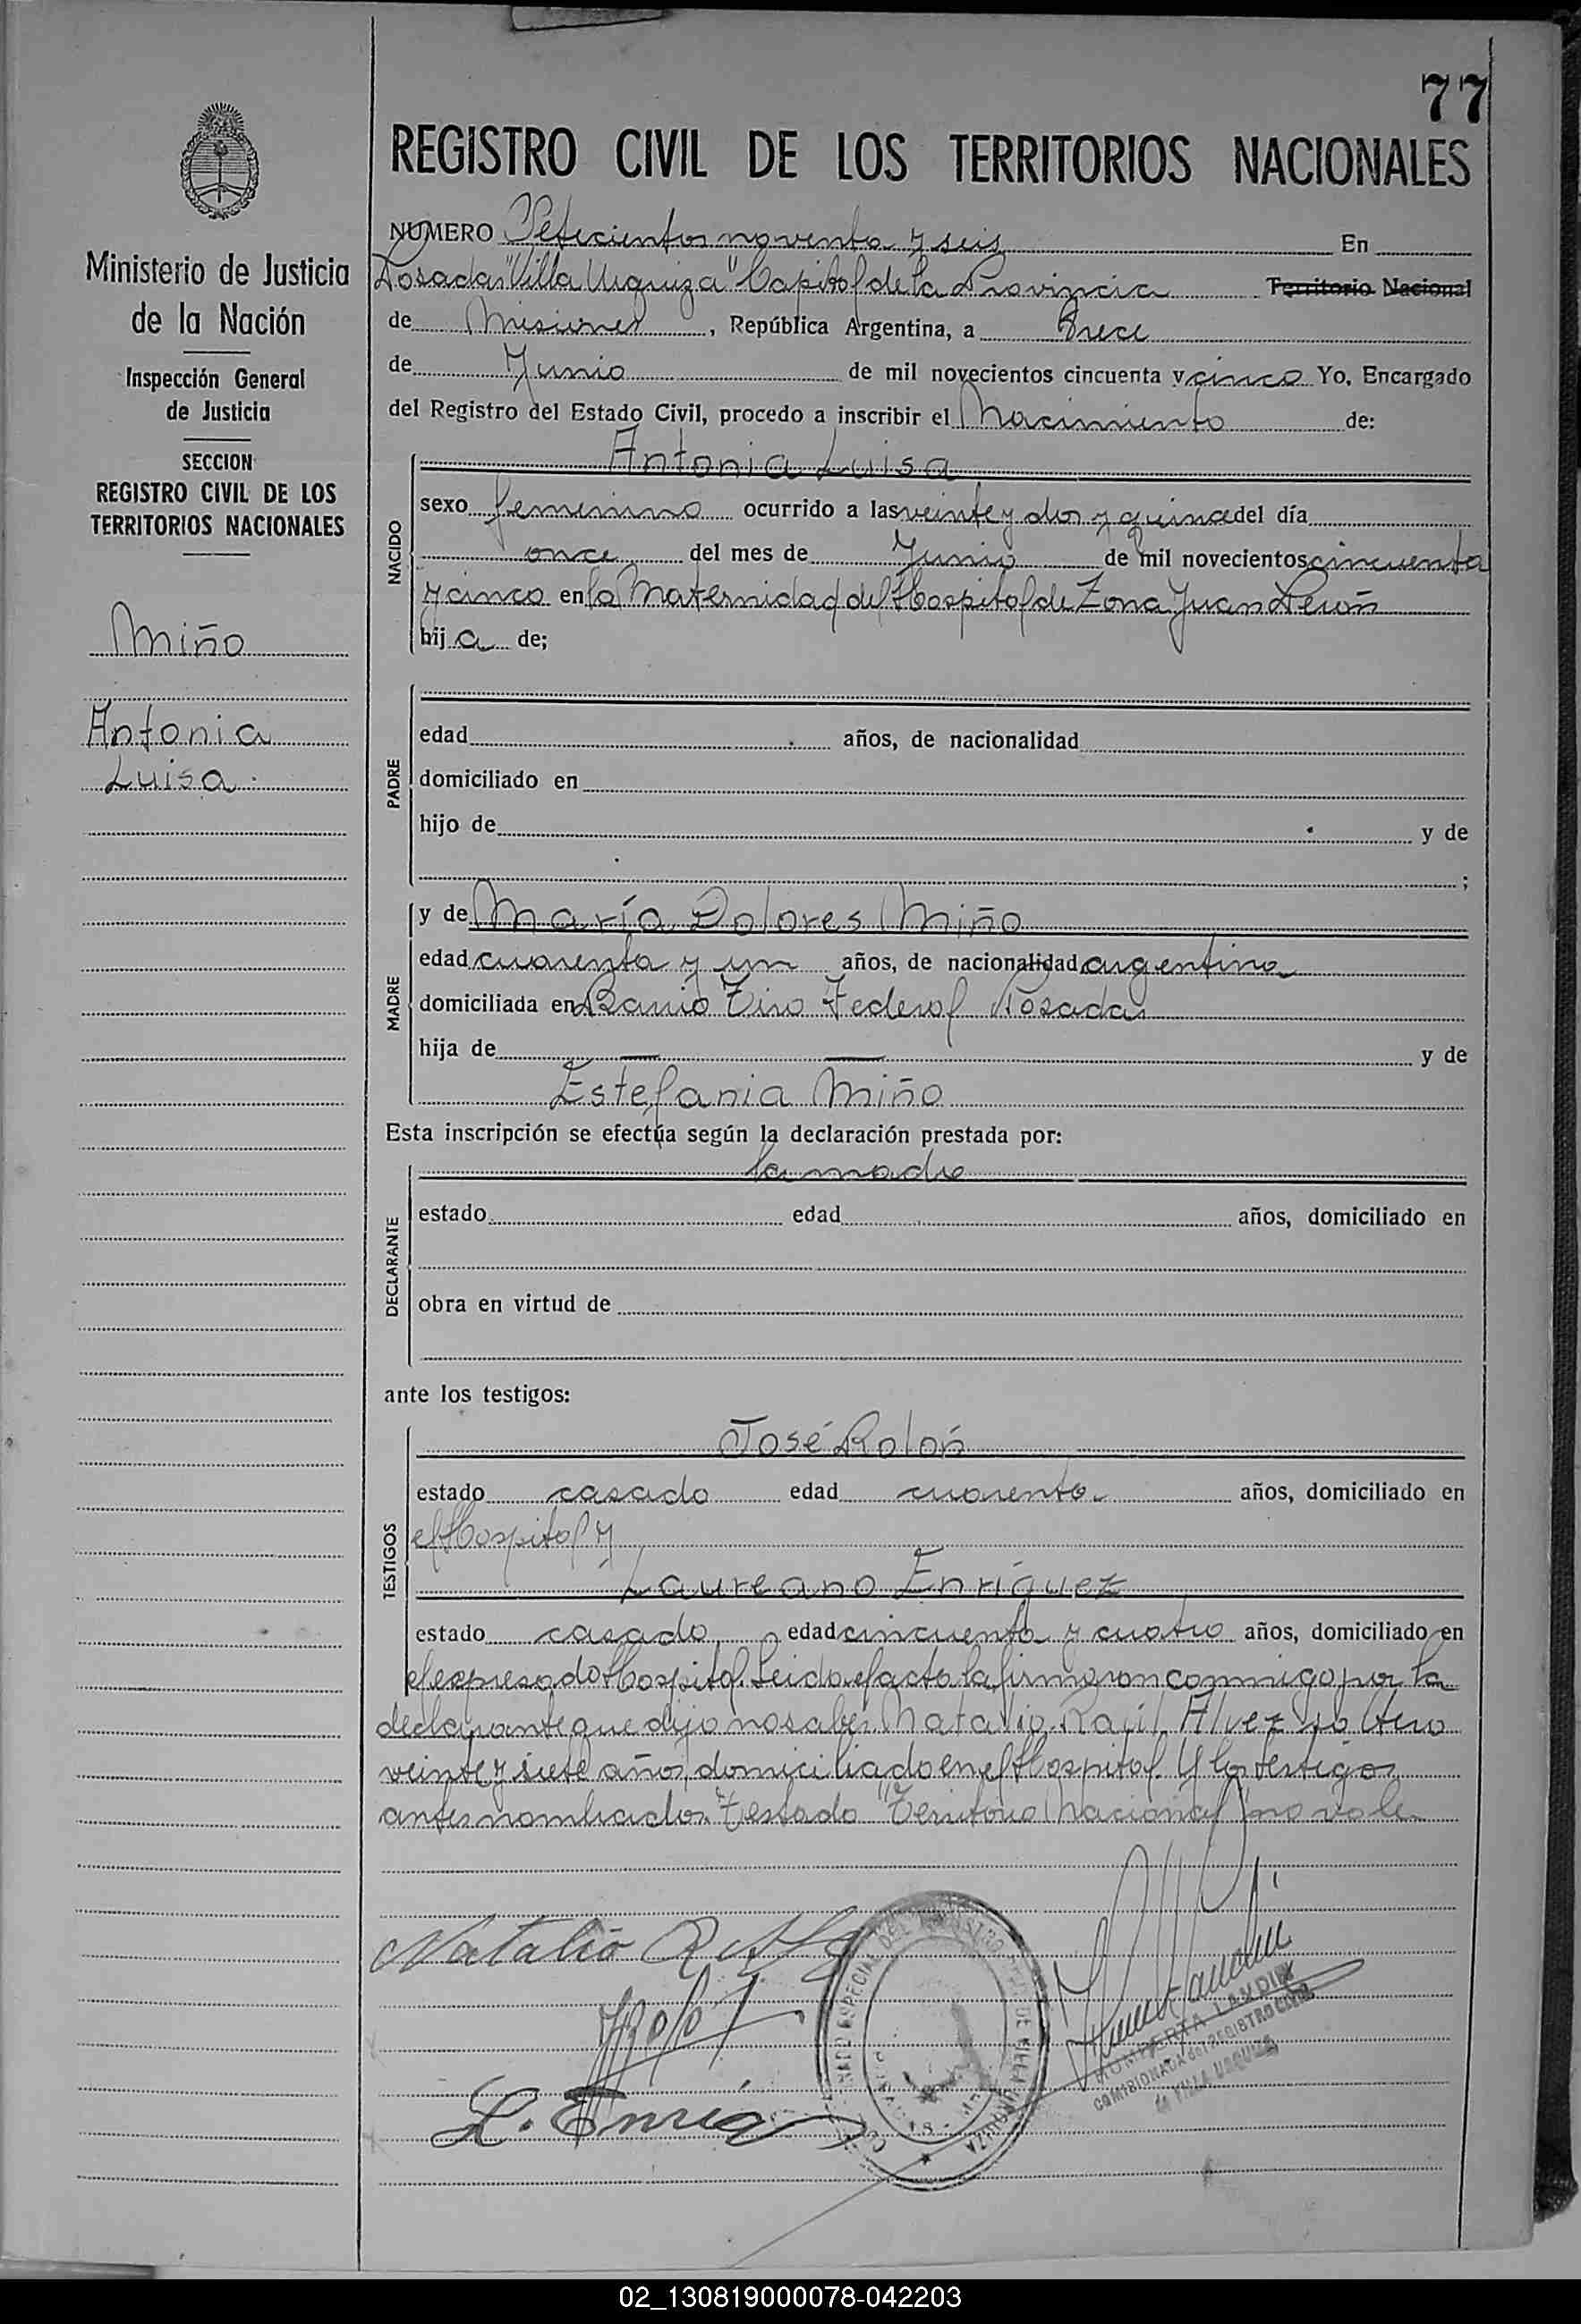 77
REGISTRO CIVIL DE LOS TERRITORIOS NACIONALES
Ministerio de Justicia
de la Nación
Inspección General
de Justicia
SECCION
REGISTRO CIVIL DE LOS
TERRITORIOS NACIONALES
Miño
Antonia
Luisa
NUMERO Setecientos noventa y seis En
Posadas "Villa Urquiza" Capital de la Provincia Territorio Nacional
de Misiones, República Argentina, a Trece
de Junio de mil novecientos cincuenta y cinco Yo, Encargado
del Registro del Estado Civil, procedo a inscribir el Nacimiento de:
NACIDO
Antonia Luisa
sexo femenino ocurrido a las veinte y dos y quince del día
once del mes de Junio de mil novecientos cincuenta
y cinco en la Maternidad del Hospital de Zona Juan Perón
hij a de;
PADRE
edad años, de nacionalidad
domiciliado en
hijo de y de
;
MADRE
y de María Dolores Miño
edad cuarenta y un años, de nacionalidad argentina
domiciliada en Barrio Tiro Federal Posadas
hija de — — y de
Estefania Miño
Esta inscripción se efectúa según la declaración prestada por:
DECLARANTE
la madre
estado edad años, domiciliado en
obra en virtud de
ante los testigos:
TESTIGOS
José Rolón
estado casado edad cuarenta años, domiciliado en
el Hospital y
Laureano Enríquez
estado casado edad cincuenta y cuatro años, domiciliado en
el expresado Hospital. Leida el acta la firmaron conmigo por la
declarante que dijo no saber Natalio Raúl Alvez soltero
veinte y siete años, domiciliado en el Hospital. Y los testigos
antes nombrados. Testado "Territorio Nacional" no vale
Natalio R
L. Enriq
HUMBERTA LANDINI
COMISIONADA del REGISTRO CIVIL
de VILLA URQUIZA
02_130819000078-042203